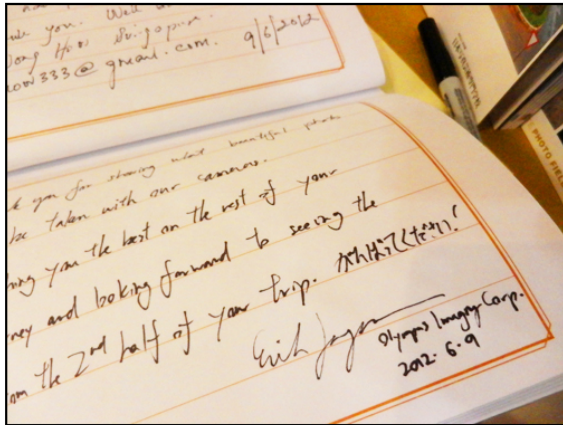 you. Well
9/6/2012
333@gmail.com.
you for sharing what beautiful photos
be taken with our cameras.
you the best on the rest of your
and looking forward to seeing the
the 2nd half of your trip. がんばってください!
Olympus Imaging Corp.
2012.6.9
PHOTO FIEL